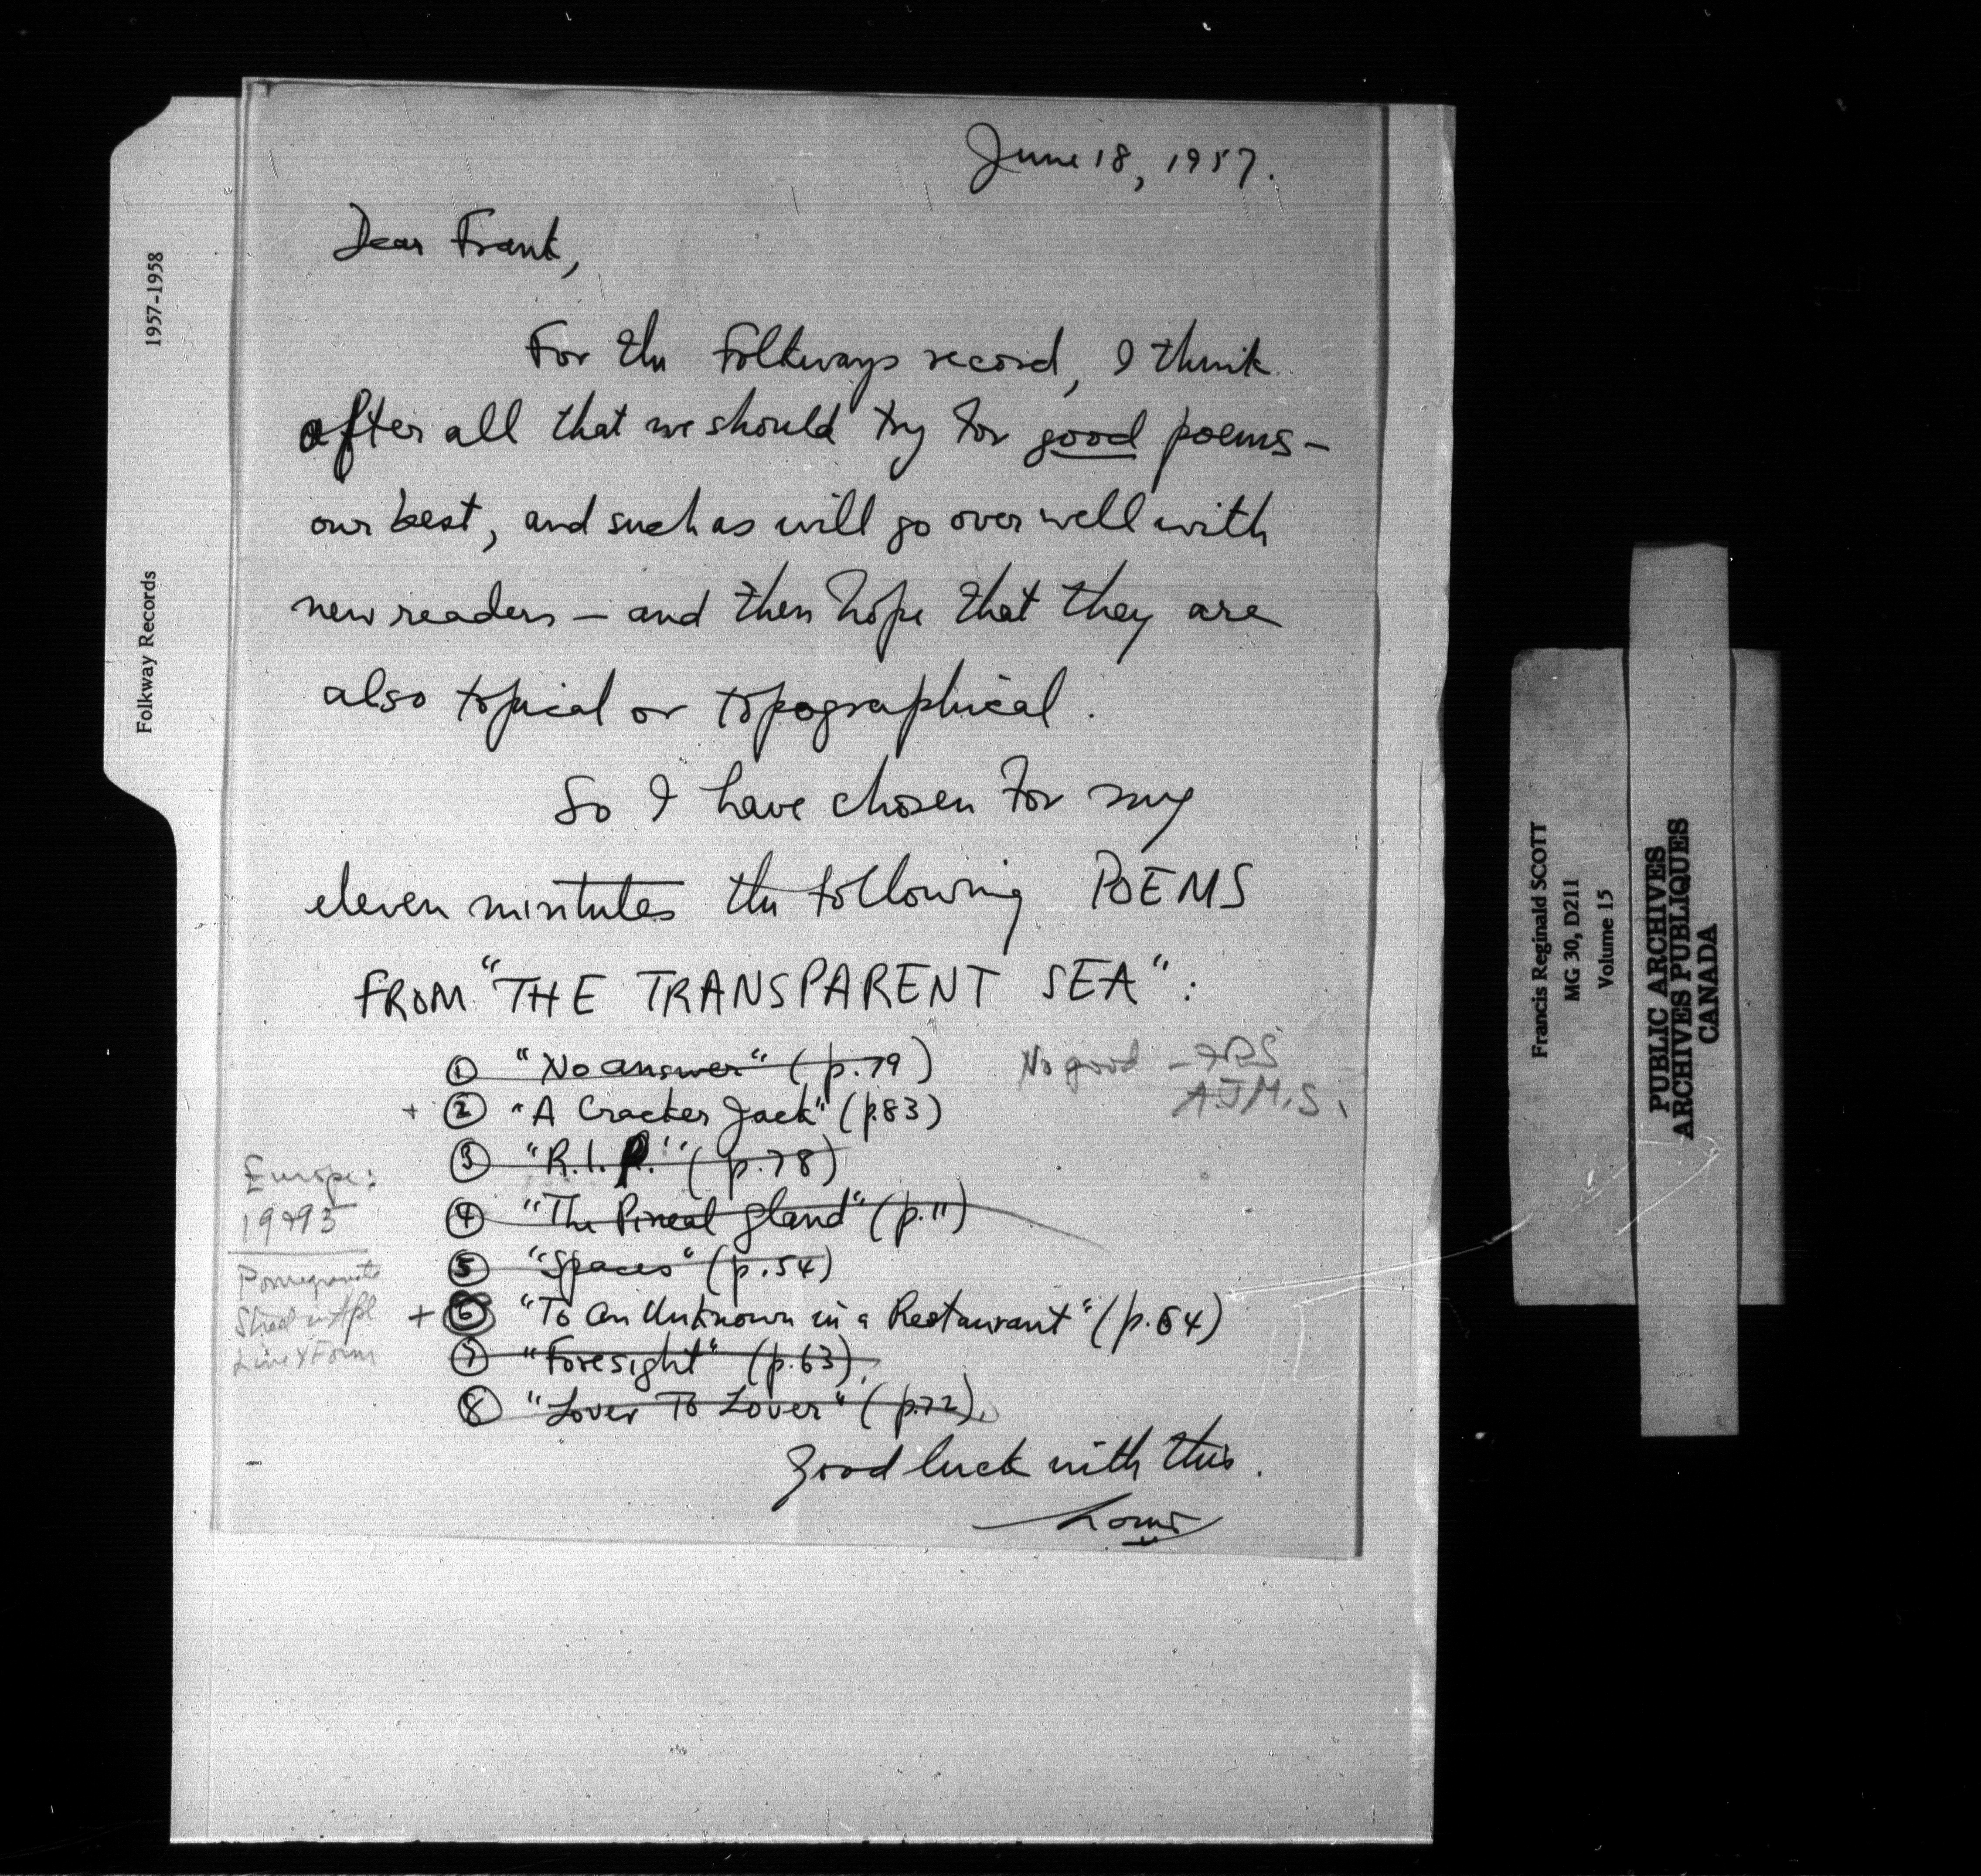 June 18, 1957.
Dear Frank,
For the Folkways record, I think
after all that we should try for good poems –
our best, and such as will go over well with
new readers – and then hope that they are
also topical or topographical.
So I have chosen for my
eleven mintutes the following POEMS
FROM "THE TRANSPARENT SEA":
① "No answer" (p.79) No good – FRS
A.J.M.S.
+ ② "A Cracker Jack" (p.83)
③ "R.I.P." (p.78)
④ "The Pineal gland" (p.11)
⑤ "Spaces" (p.54)
+ ⑥ "To an Unknown in a Restaurant" (p.64)
⑦ "Foresight" (p.63),
⑧ "Lover To Lover" (p.72).
Europe:
Pomegranate
Street in
Line & Form
Good luck with this.
Louis
1957-1958
Folkway Records
Francis Reginald SCOTT
MG 30, D211
Volume 15
PUBLIC ARCHIVES
ARCHIVES PUBLIQUES
CANADA